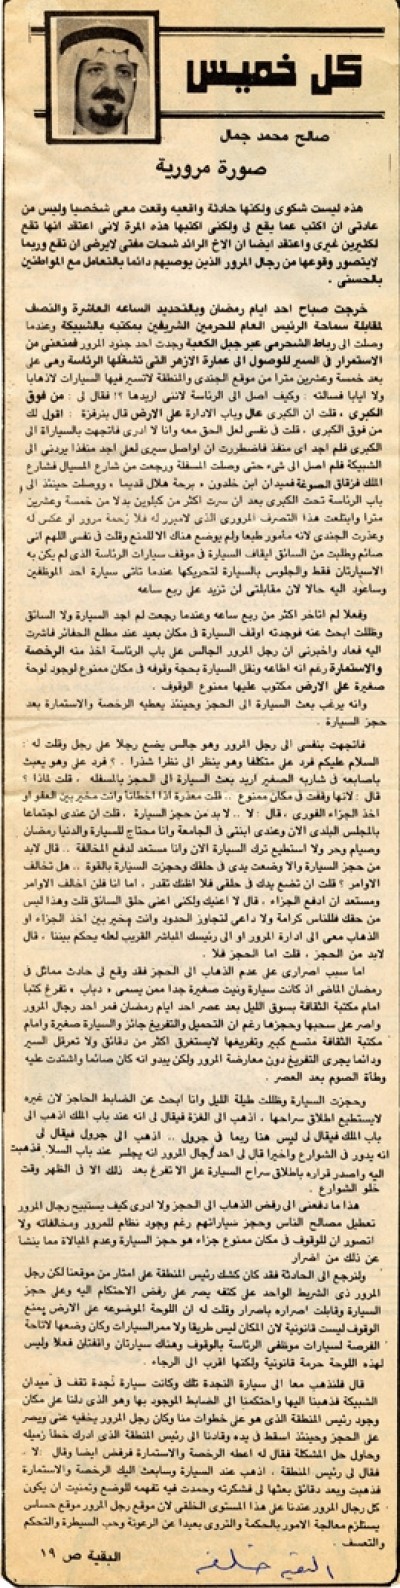 كل خميس
صالح محمد جمال
صورة مرورية
هذه ليست شكوى ولكنها حادثة واقعيه وقعت معى شخصيا وليس من
عادتى ان اكتب عما يقع لى ولكنى اكتبها هذه المرة لانى اعتقد انها تقع
لكثيرين غيرى واعتقد ايضا ان الاخ الرائد شحات مفتى لايرضى ان تقع وربما
لايتصور وقوعها من رجال المرور الذين يوصيهم دائما بالتعامل مع المواطنين
بالحسنى .
خرجت صباح احد ايام رمضان وبالتحديد الساعه العاشرة والنصف
لمقابلة سماحة الرئيس العام للحرمين الشريفين بمكتبه بالشبيكة وعندما
وصلت الى رباط الشحرمى عبر جبل الكعبة وجدت احد جنود المرور فمنعنى من
الاستمرار فى السير للوصول الى عمارة الازهر التى تشغلها الرئاسة وهى على
بعد خمسة وعشرين مترا من موقع الجندى والمنطقة لاتسير فيها السيارات لاذهابا
ولا ايابا فسالته : وكيف اصل الى الرئاسة لاننى اريدها ؟! فقال لى : من فوق
الكبرى ، قلت ان الكبرى عال وباب الادارة على الارض قال بنرفزة : اقول لك
من فوق الكبرى ، قلت فى نفسى لعل الحق معه وانا لا ادرى فاتجهت بالسياراة الى
الكبرى فلم اجد اى منفذ فاضطررت ان اواصل سيرى لعلى اجد منفذا يردنى الى
الشبيكة فلم اصل الى شىء حتى وصلت المسفلة ورجعت من شارع المسيال فشارع
الملك فزقاق الصوغة فميدان ابن خلدون ، برحة هلال قديما ، ووصلت حينئذ الى
باب الرئاسة تحت الكبرى بعد ان سرت اكثر من كيلوين بدلا من خمسة وعشرين
مترا وابتلعت هذا التصرف المرورى الذى لامبرر له فلا زحمة مرور او عكس له
وعذرت الجندى لانه مأمور طبعا ولم يوضع هناك الا للمنع وقلت فى نفسى اللهم انى
صائم وطلبت من السائق ايقاف السيارة فى موقف سيارات الرئاسة الذى لم يكن به
الاسيارتان فقط والجلوس بالسيارة لتحريكها عندما تاتى سيارة احد الموظفين
وساعود اليه حالا لان مقابلتى لن تزيد على ربع ساعه
وفعلا لم اتاخر اكثر من ربع ساعه وعندما رجعت لم اجد السيارة ولا السائق
وظللت ابحث عنه فوجدته اوقف السيارة فى مكان بعيد عند مطلع الحفائر فاشرت
اليه فعاد واخبرنى ان رجل المرور الجالس على باب الرئاسة اخذ منه الرخصة
والاستمارة رغم انه اطاعه ونقل السيارة بحجة وقوفه فى مكان ممنوع لوجود لوحة
صغيرة على الارض مكتوب عليها ممنوع الوقوف .
وانه يرغب بعث السيارة الى الحجز وحينئذ يعطيه الرخصة والاستمارة بعد
حجز السيارة .
فاتجهت بنفسى الى رجل المرور وهو جالس يضع رجلا على رجل وقلت له :
السلام عليكم فرد على متكلفا وهو ينظر الى نظرا شذرا . ؟ فرد على وهو يعبث
باصابعه فى شاربه الصغير اريد بعث السيارة الى الحجز بالمسفله ، قلت لماذا ؟
قال : لانها وقفت فى مكان ممنوع .. قلت معذرة اذا اخطأنا وانت مخير بين العفو او
اخذ الجزاء الفورى ، قال : لا .. لا بد من حجز السيارة ، قلت ان عندى اجتماعا
بالمجلس البلدى الان وعندى ابنتى فى الجامعة وانا محتاج للسيارة والدنيا رمضان
وصيام وحر ولا استطيع ترك السيارة الان وانا مستعد لدفع المخالفة .. قال لابد
من حجز السيارة والا وضعت يدى فى حلقك وحجزت السيارة بالقوة .. هل تخالف
الاوامر ؟ قلت ان تضع يدك فى حلقى فلا اظنك تقدر ، اما انا فلن اخالف الاوامر
ومستعد ان ادفع الجزاء ، قال لا اعنيك ولكنى اعنى حلق السائق قلت وهذا ليس
من حقك فللناس كرامة ولا داعى لتجاوز الحدود وانت مخير بين اخذ الجزاء او
الذهاب معى الى ادارة المرور او الى رئيسك المباشر القريب لعله يحكم بيننا ، قال
لابد من الحجز ، قلت اما الحجز فلا .
اما سبب اصرارى على عدم الذهاب الى الحجز فقد وقع لى حادث مماثل فى
رمضان الماضى اذ كانت سيارة ونيت صغيرة جدا ممن يسمى « دباب » تفرغ كتبا
امام مكتبة الثقافة بسوق الليل بعد عصر احد ايام رمضان فمر احد رجال المرور
واصر على سحبها وحجزها رغم ان التحميل والتفريغ جائز والسيارة صغيرة وامام
مكتبة الثقافة متسع كبير وتفريغها لايستغرق اكثر من دقائق ولا تعرقل السير
ودائما يجرى التفريغ دون معارضة المرور ولكن يبدو انه كان صائما واشتدت عليه
وطأة الصوم بعد العصر .
وحجزت السيارة وظللت طيلة الليل وانا ابحث عن الضابط الحاجز لان غيره
لايستطيع اطلاق سراحها ، اذهب الى الغزة فيقال لى انه عند باب الملك اذهب الى
باب الملك فيقال لى ليس هنا ربما فى جرول .. اذهب الى جرول فيقال لى
انه يدور فى الشوارع واخيرا قال لى احد رجال المرور انه يجلس عند باب السلا. فذهبت
اليه واصدر قراره باطلاق سراح السيارة على الا تفرغ بعد ذلك الا فى الظهر وقت
خلو الشوارع .
هذا ما دفعنى الى رفض الذهاب الى الحجز ولا ادرى كيف يستبيح رجال المرور
تعطيل مصالح الناس وحجز سياراتهم رغم وجود نظام للمرور ومخالفاته ولا
اتصور ان للوقوف فى مكان ممنوع جزاء هو حجز السيارة وعدم المبالاة مما ينشأ
عن ذلك من اضرار
ولنرجع الى الحادثة فقد كان كشك رئيس المنطقة على امتار من موقعنا لكن رجل
المرور ذى الشريط الواحد على كتفه يصر على رفض الاحتكام اليه وعلى حجز
السيارة وقابلت اصراره باصرار وقلت له ان اللوحة الموضوعه على الارض بمنع
الوقوف ليست قانونية لان المكان ليس طريقا ولا ممر السيارات وكان وضعها لاتاحة
الفرصة لسيارات موظفى الرئاسة بالوقوف وهناك سيارتان واقفتان فعلا وليس
لهذه اللوحة حرمة قانونية ولكنها اقرب الى الرجاء .
قال فلنذهب معا الى سيارة النجدة تلك وكانت سيارة نجدة تقف فى ميدان
الشبيكة فذهبنا اليها واحتكمنا الى الضابط الموجود بها وهو الذى دلنا على مكان
وجود رئيس المنطقة الذى هو على خطوات منا وكان رجل المرور يخفيه عنى ويصر
على الحجز وحينئذ اسقط فى يده وقادنا الى رئيس المنطقة الذى ادرك خطأ زميله
وحاول حل المشكلة فقال له اعطه الرخصة والاستمارة فرفض ايضا وقال : لا ..
فقال لى رئيس المنطقة ، اذهب عند السيارة وسابعث اليك الرخصة والاستمارة
فذهبت وبعد دقائق بعثها لى فشكرته وحمدت فيه تفهمه للوضع وتمنيت ان يكون
كل رجال المرور عندنا على هذا المستوى الخلقى لان موقع رجل المرور موقع حساس
يستلزم معالجة الامور بالحكمة والتروى بعيدا عن الرعونة وحب السيطرة والتحكم
والتعسف .
البقية ص ١٩
البقيه خلفه